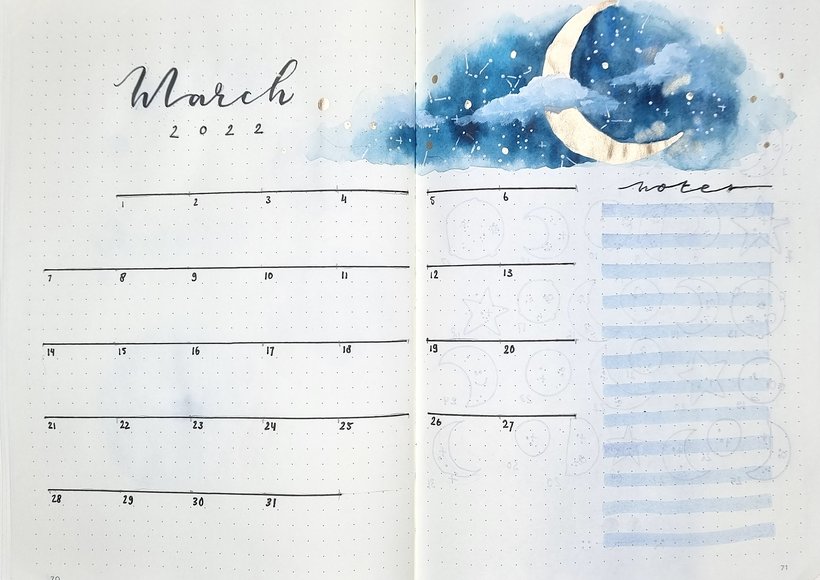 March
2022
notes
1 2 3 4 5 6
7 8 9 10 11 12 13
14 15 16 17 18 19 20
21 22 23 24 25 26 27
28 29 30 31
70 71